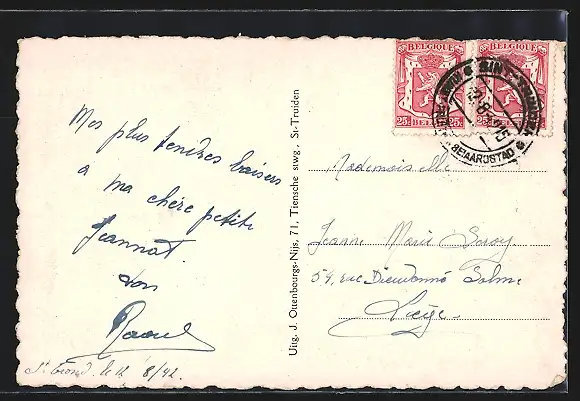 Mes plus tendres baisers
a ma chère petite
Jeannot.
ton
Raoul
St Trond. le 12 8/42
Uitg. J. Ottenbourgs-Nijs, 71, Tiensche stwg, St-Truiden
BELGIQUE
25c BELGIË 25c
BELGIQUE
25c BELGIË 25c
SINT-TRUIDEN
BEIAARDSTAD
Mademoiselle
Jeanne Marie
59, rue Dieudonné Salme
Liège